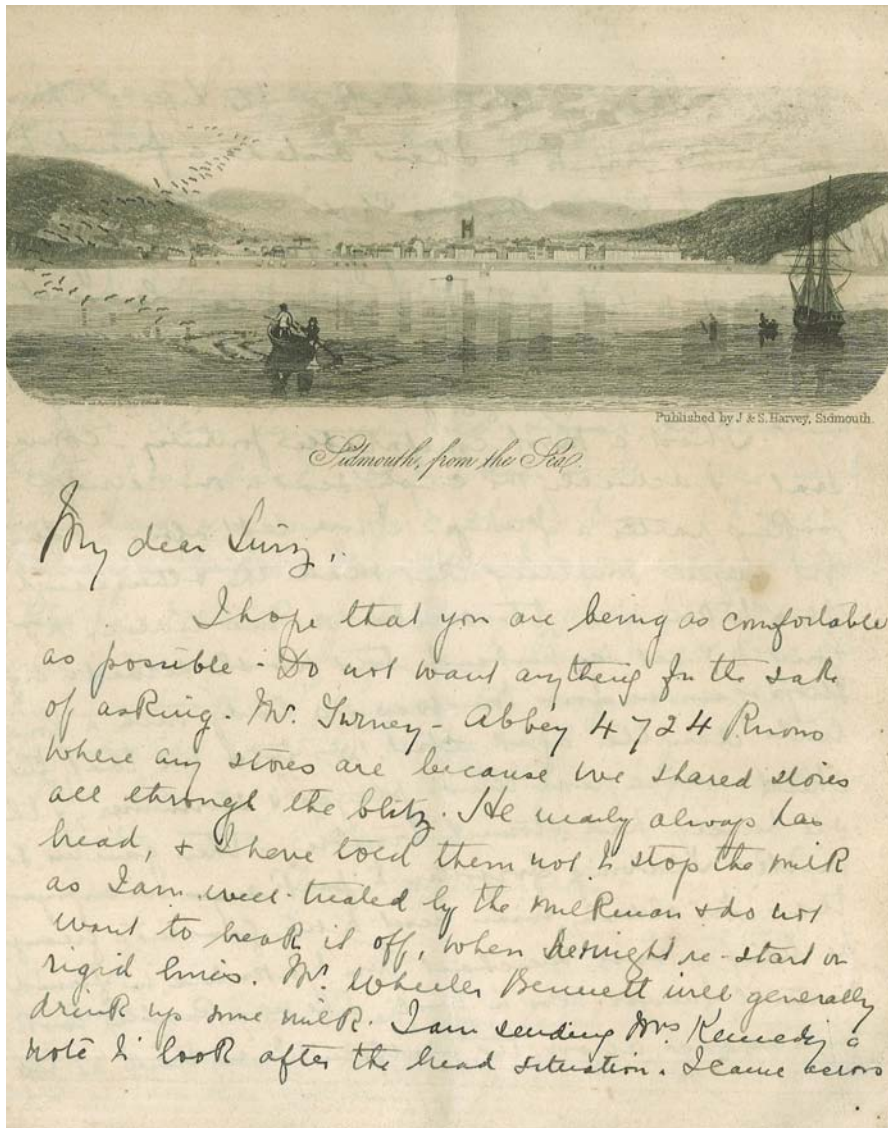 Published by J & S. Harvey, Sidmouth.
Sidmouth, from the Sea.
My dear
I hope that you are being as comfortable
as possible - Do not want anything for the sake
of asking. Mr. Turney - Abbey 4724 Knows
where any stores are because we shared stores
all through the blitz. He nearly always has
bread, & I have told them not to stop the milk
as I am well-treated by the milkman & do not
want to break it off, when he might re-start on
rigid lines. Mr. Wheeler Bennett will generally
drink up some milk. I am sending Mrs Kennedy a
note to look after the bread situation. I came across